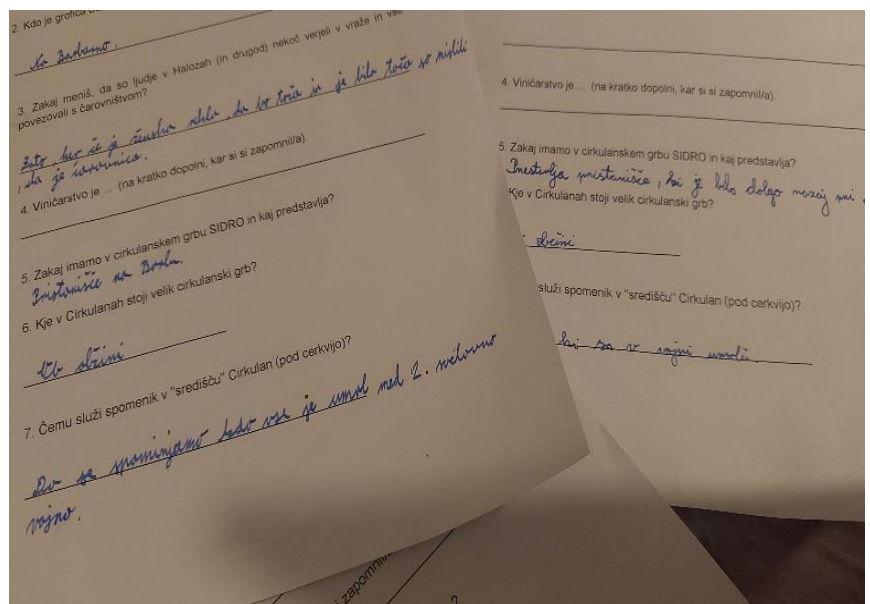 2. Kdo je grofica
Na Barbaro.
3. Zakaj meniš, da so ljudje v Halozah (in drugod) nekoč verjeli v vraže in vse
povezovali s čarovništvom?
Zato, ker če je ženska rekla, da bo toča in je bila toča so mislili
, da je čarovnica.
4. Viničarstvo je ... (na kratko dopolni, kar si si zapomnil/a).
5. Zakaj imamo v cirkulanskem grbu SIDRO in kaj predstavlja?
Pristanišče na Borlu.
6. Kje v Cirkulanah stoji velik cirkulanski grb?
Ob občini
7. Čemu služi spomenik v "središču" Cirkulan (pod cerkvijo)?
Da se spominjamo kdo vse je umrl med 2. svetovno
vojno.
4. Viničarstvo je ... (na kratko dopolni, kar si si zapomnil/a).
5. Zakaj imamo v cirkulanskem grbu SIDRO in kaj predstavlja?
pristanišče, ki je bilo dolgo nazaj pri
Kje v Cirkulanah stoji velik cirkulanski grb?
občini
služi spomenik v "središču" Cirkulan (pod cerkvijo)?
ki so v vojni umrli.
zapomnil
?